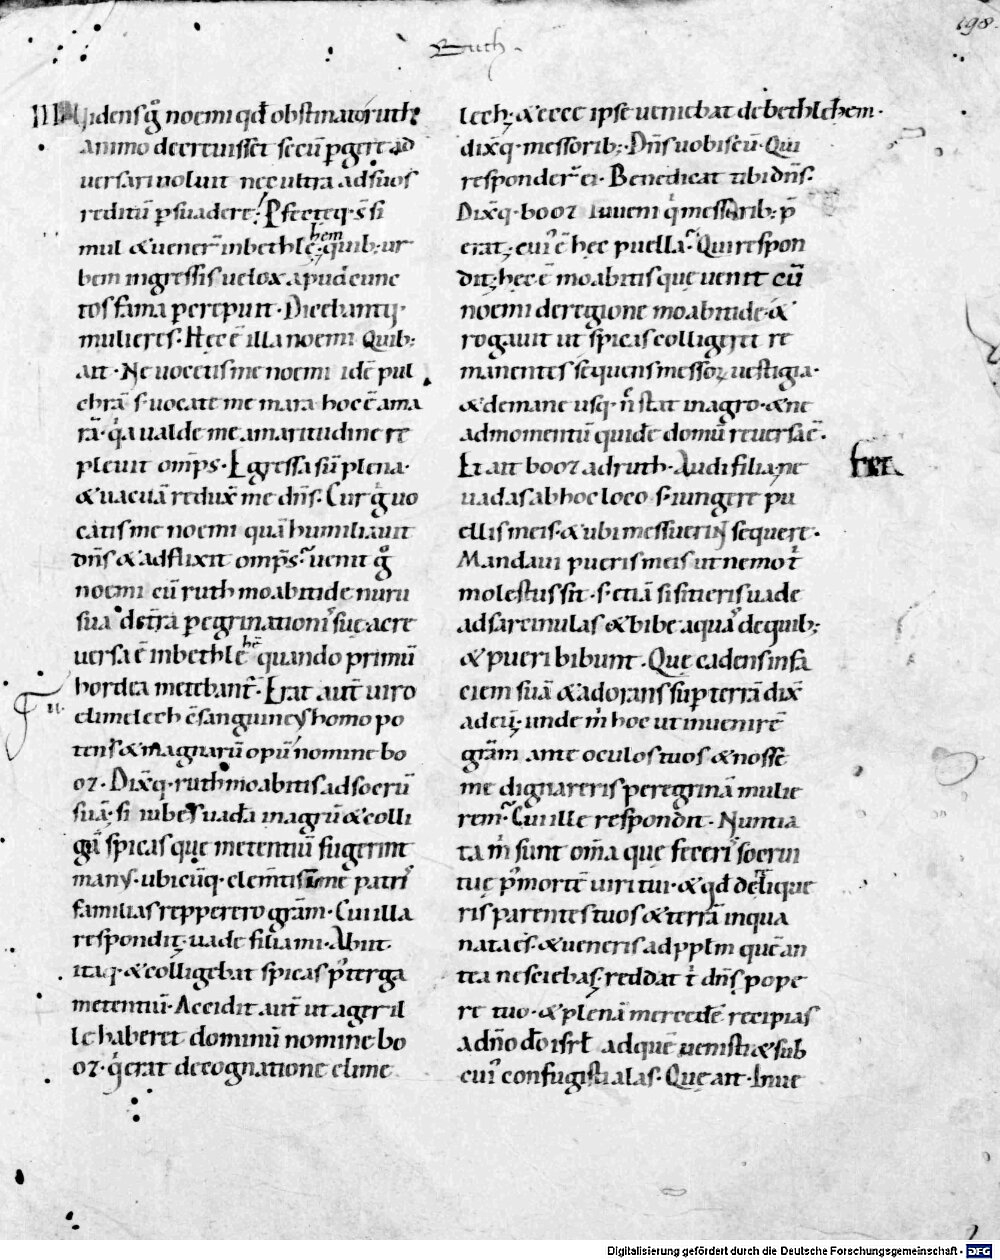 198.
Ruth.
III Uidens g̊ noemi qd̄ obstinato ruth
animo decreuisset secū p̱gere ad
uersari noluit nec ultra ad suos
reditū p̱suadere. Ꝓfecteq; s̄ si
mul & uener̄ in bethlehem. quib; ur
bem ingressis uelox apud cunc
tos fama percrepuit. Dicebantq;
mulieres. Hęc ē illa noemi. Quib;
ait. Ne uocetis me noemi idē pul
chrā. s; uocate me mara hoc ē ama
rā. qͥa ualde me amaritudine re
pleuit omp̄s. Egressa sū plena.
& uacuā reduxͭ me dn̄s. Cur g̊ uo
catis me noemi quā humiliauit
dn̄s & adflixit omp̄s. uenit g̊
noemi cū ruth moabitide nuru
sua de tr̄ra p̱egrinationis suę ac re
uersa ē in bethlehē quando primū
hordea metebantᷣ. Erat aut̄ uiro
elimelech c̄sanguineus homo po
tens & magnarū opū nomine bo
oz. Dixͭq; ruth moabitis ad socrū
suā. si iubes uadā in agrū & colli
gā spicas quę metentiū fugerint
manus. ubicūq; clem̄tis in me patris
familias repperero gr̄am. Cui illa
respondit. uade filia mi. Abiit
itaq; & colligebat spicas p̄ terga
metentiū. Accidit aut̄ ut ager il
le haberet dominū nomine bo
oz. qͥ erat de cognatione elime
lech. & ecce ipse ueniebat de bethlehem.
dixͭq; messorib;. Dn̄s uobiscū. Qui
responder̄ ei. Benedicat tibi dn̄s.
Dixͭq; booz iuueni qͥ messorib; p̄
erat. cuiꝰ ē hęc puella. Qui respon
dit. hęc ē moabitis quę uenit cū
noemi de regione moabitide. &
rogauit ut spicas colligeret re
manentes sequens messoꝝ uestigia.
& de mane usq; n̄ stat in agro. & ne
ad momentū quidē domū reuersa ē.
Et ait booz ad ruth. Audi filia. ne
uadas ab hoc loco s; iungere pu
ellis meis. & ubi messuerint sequere.
Mandaui pueris meis ut nemo tͥ
molestus sit. s; etiā si sitieris uade
ad sarcinulas & bibe aquas de quib;
& pueri bibunt. Quę cadens in fa
ciem suā & adorans sup̱ terrā dixͭ
ad eū. unde m̄ hoc ut inuenirē
gr̄am ante oculos tuos & nosse
me dignareris peregrinā mulie
rem. Cui ille respondit. Nuntia
ta m̄ sunt om̄a quę feceris socrui
tuę p̄ mortē uiri tui. & qd̄ delique
ris parentes tuos & terrā in qua
nata es. & ueneris ad pplm̄ quē an
tea nesciebas. reddat tͥ dn̄s p̱ ope
re tuo. & plenā mercedē recipias
a dn̄o dō isrł ad quē uenisti & sub
cuiꝰ confugisti alas. Quę ait. Inue
Digitalisierung gefördert durch die Deutsche Forschungsgemeinschaft - DFG